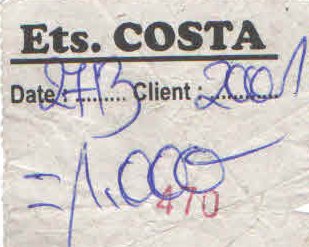 Ets. COSTA
Date : 27/3 Client : 2001
=1.000
470